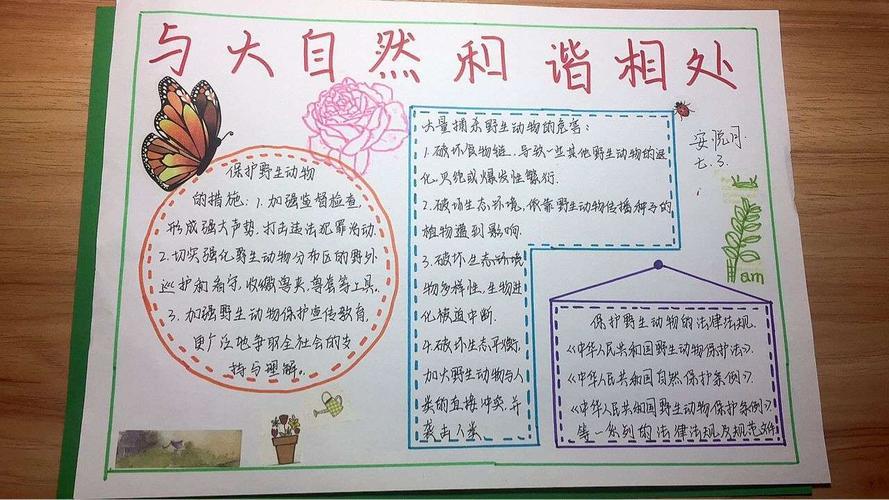 与大自然和谐相处
安悦月
七.3.
保护野生动物
的措施：1.加强监督检查,
形成强大声势,打击违法犯罪活动.
2.切实强化野生动物分布区的野外
巡护和看守,收缴兽夹,兽套等工具。
3.加强野生动物保护宣传教育,
更广泛地争取全社会的支
持与理解。
大量捕杀野生动物的危害：
1.破坏食物链,导致一些其他野生动物的退
化.灭绝或爆发性繁衍.
2.破坏生态环境,依靠野生动物传播种子的
植物遭到影响.
3.破坏生态环境
物多样性,生物进
化横道中断.
4.破坏生态平衡,
加大野生动物与人
类的直接冲突,并
袭击人类
am
保护野生动物的法律法规.
《中华人民共和国野生动物保护法》.
《中华人民共和国自然保护条例》.
《中华人民共和国野生动物保护条例》.
等一系列的法律法规及规范文件